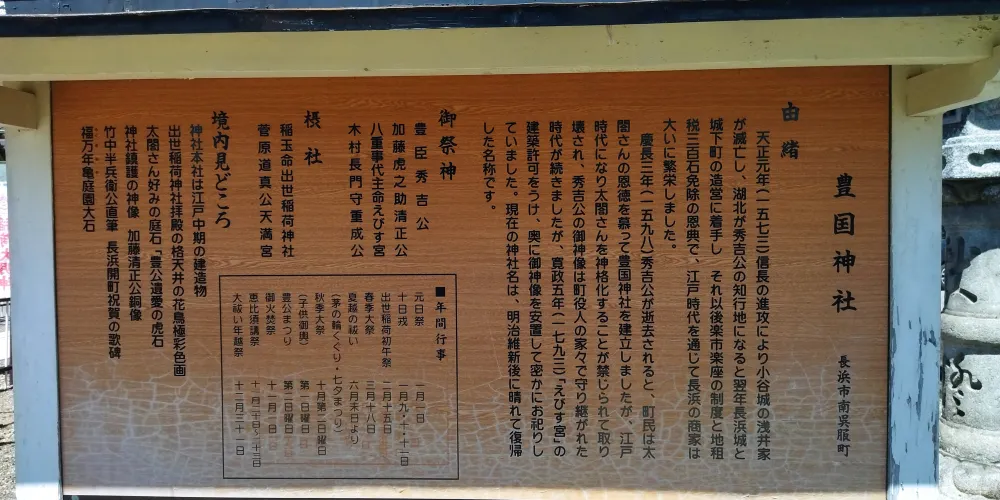 豊国神社
長浜市南呉服町
由緒
天正元年(一五七三)信長の進攻により小谷城の浅井家
が滅亡し、湖北が秀吉公の知行地になると翌年長浜城と
城下町の造営に着手し それ以後楽市楽座の制度と地租
税三百石免除の恩典で、江戸時代を通じて長浜の商家は
大いに繁栄しました。
慶長三年(一五九八)秀吉公が逝去されると、町民は太
閤さんの恩徳を慕って豊国神社を建立しましたが、江戸
時代になり太閤さんを神格化することが禁じられて取り
壊され、秀吉公の御神像は町役人の家々で守り継がれた
時代が続きましたが、寛政五年(一七九三)「えびす宮」の
建築許可をうけ、奥に御神像を安置して密かにお祀りし
ていました。現在の神社名は、明治維新後に晴れて復帰
した名称です。
御祭神
豊臣秀吉公
加藤虎之助清正公
八重事代主命えびす宮
木村長門守重成公
摂社
稲玉命出世稲荷神社
菅原道真公天満宮
境内見どころ
神社本社は江戸中期の建造物
出世稲荷神社拝殿の格天井の花鳥極彩色画
太閤さん好みの庭石「豊公遺愛の虎石
神社鎮護の神像 加藤清正公銅像
竹中半兵衛公直筆 長浜開町祝賀の歌碑
福万年亀庭園大石
■年間行事
元日祭 一月一日
十日戎 一月九・十・十一日
出世稲荷初午祭 二月十五日
春季大祭 三月十八日
夏越の祓い 六月末日より
(茅の輪くぐり・七夕まつり)
秋季大祭 十月第二日曜日
(子供御輿) 第一日曜日
豊公まつり 第二日曜日
御火焚祭 十一月一日
恵比商講祭 十一月二日~二十三日
大祓い年越祭 十二月三十一日